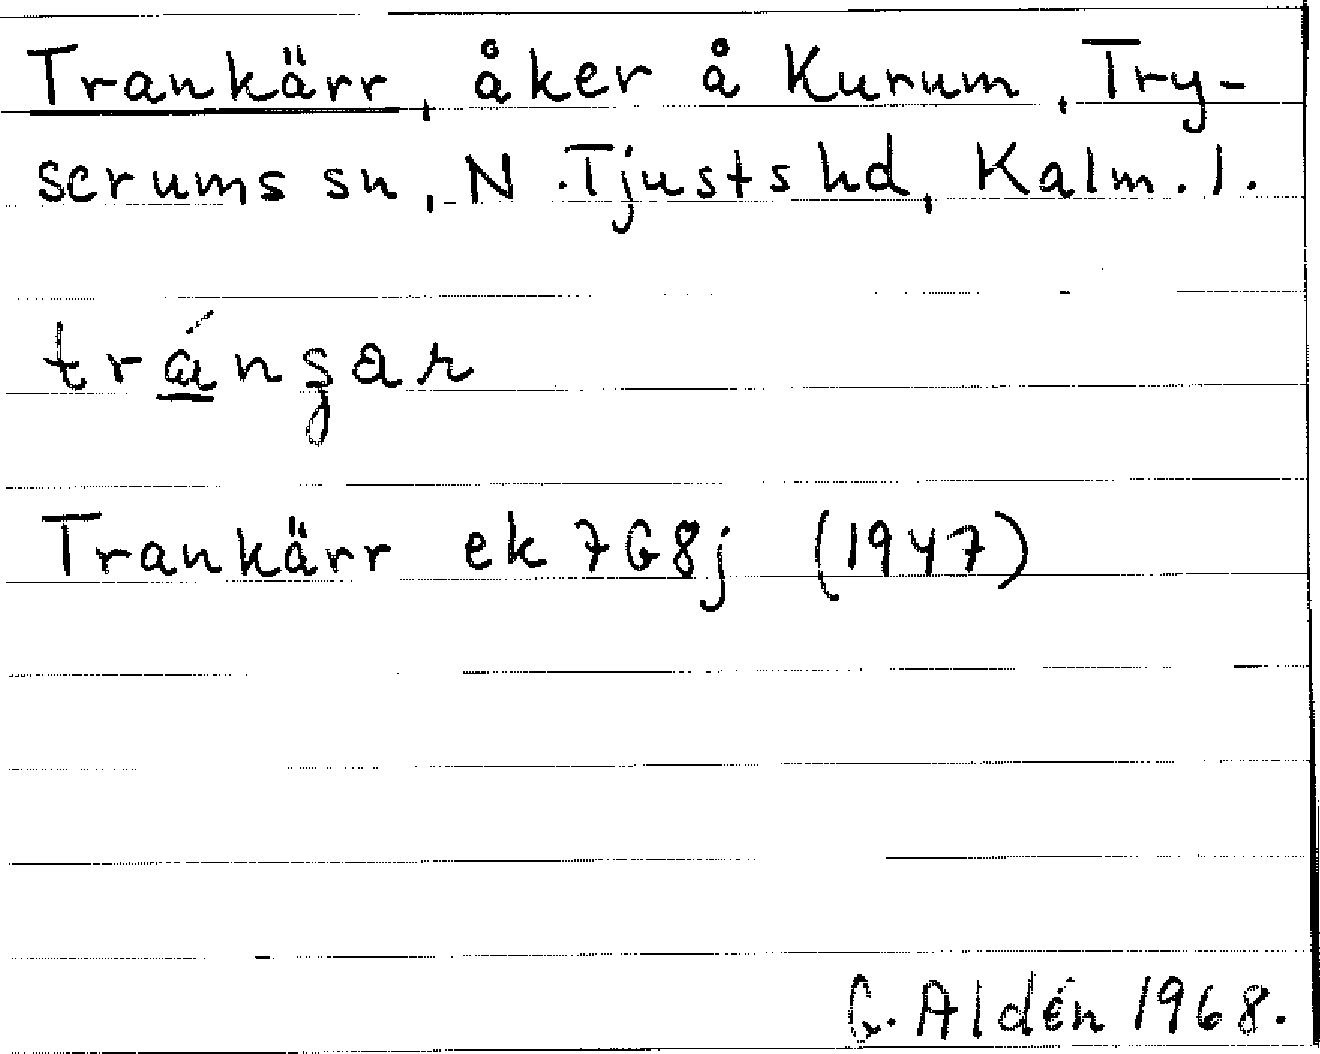 Trankärr, åker å Kurum, Try-
serums sn, N. Tjusts hd, Kalm. l.
Trankärr ek 7G8j (1947)
G. Aldén 1968.